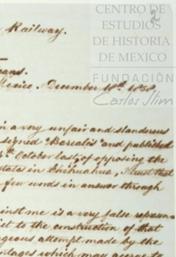 CENTRO DE
ESTUDIOS
DE HISTORIA
DE MÉXICO
FUNDACIÓN
Carlos Slim
2
Railway.
Mexico, December 18th 18
in a very unfair and slanderous
signed "Chorsalis" and published
th October last, of opposing the
State in Chihuahua, I trust that
few words in answer through
inst me is a very false represen-
ist to the construction of that
geous attempt made by the
ntages which may accrue to